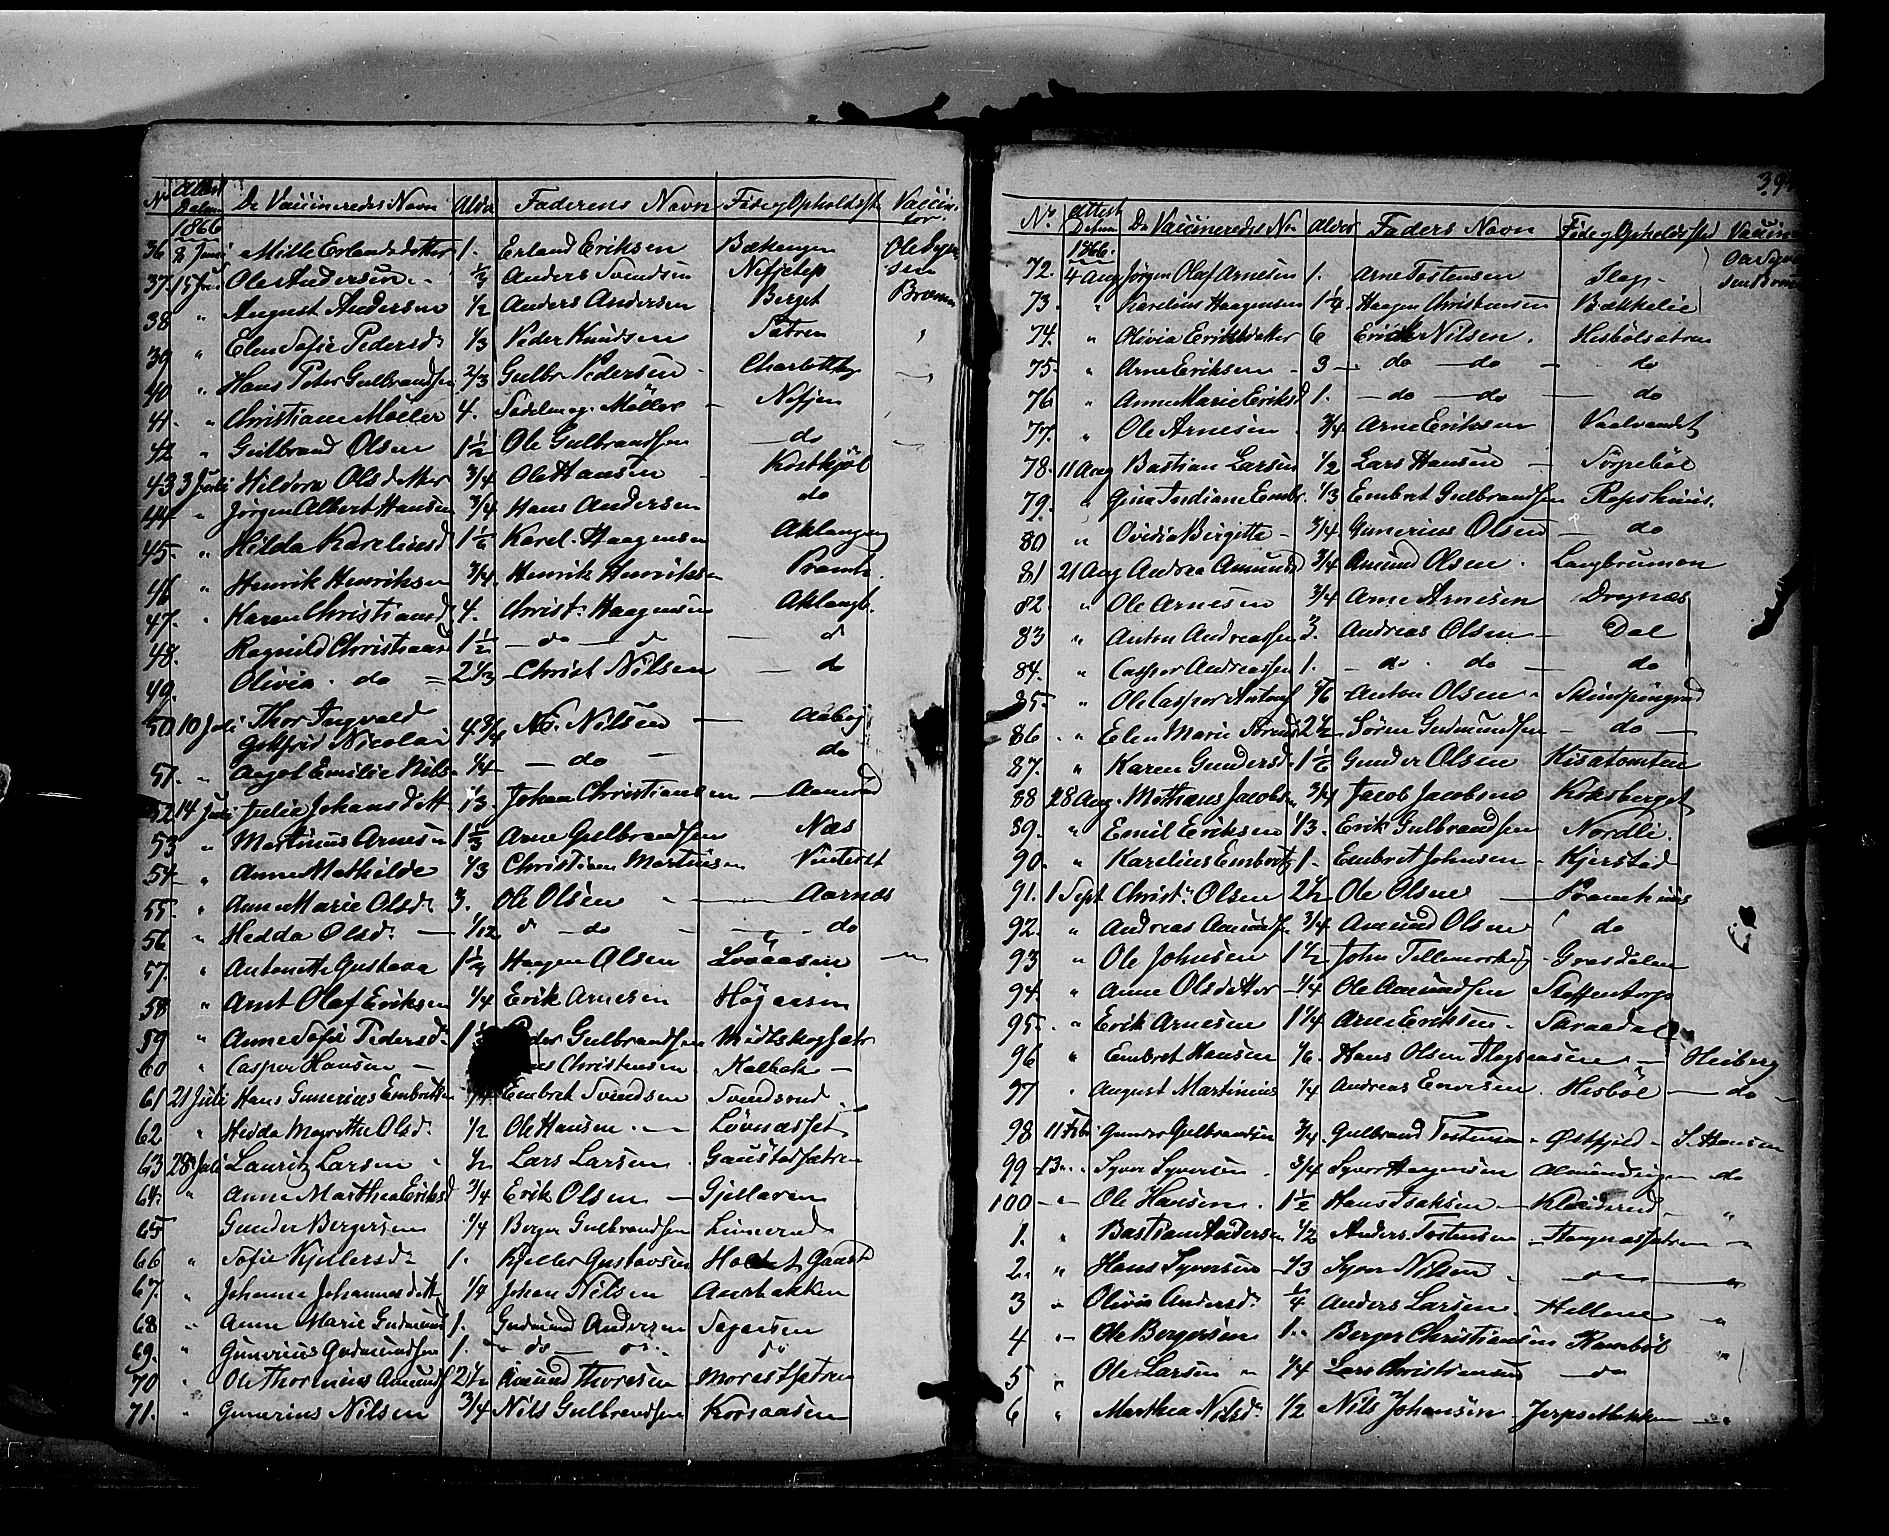 No Attest Datum De Vaccineredes Navn Alder Faderens Navn Føde og Opholdsst Vaccinator
1866
36 8 Juni Mille Erlandsdatter 1. Erland Eriksen Bækengen Ole Syver
37. 15 Juni Ole Andersen ½ Anders Svendsen sen
38 " August Andersen ½ Anders Andersen Berget Broen
39 " Elen Sofie Pedersd. ⅓ Peder Knudsen Sætren "
40 " Hans Peter Gulbrandsen ⅔ Gulbr Pedersen Charlottbg
41. " Christiane Möller 4. Møller
42 " Gulbrand Olsen 1½ Ole Gulbrandsen do
43 3 Juli Hildora Olsdatter ¾ Ole Hansen Kostkjøl
44 " Jørgen Albert Hansen ¾ Hans Andersen do
45. " Hilda Karelinsd 1⅙ Karel. Haagensen Aklangen
46 " Henrik Henriksen ¾. Henrik Henriksen Pramh.
47. " Karen Christiansd 4. Christ. Haagensen Aklangt.
48. Ragnild Christiansd 1½ do d d
49. Olivia do 2⅓ Christ Nilsen do
50 10 Juli Thor Ingvald
Gotfrid Nicolai 4¾ Ns. Nilsen Aabog
51. " Aagot Emilie Nils ¼ do do
52 14 Juli Julia Johansdatt ⅓. Johan Christiansen Aamod
53 " Martinus Arnesen 1⅓ Arne Gulbrandsen Næs
54 " Anne Mathilde ⅓ Christian Martinsen
55. " Anne Marie Olsd. 3. Ole Olsen Aarnæs
56 " Hedda Olsd. 1/12 d do do
57. " Antonette Gustava Haagen Olsen
58 " Arnt Olaf Eriksen ¼ Erik Arnesen Högaasen
59 " Anne Sofie Pedersd. Gulbrandsen Midtskogsætr
60 " Casper Hansen Christensen Kalbak
61 21 Juli Hans Gunerius Embretsen Embret Svendsen Svendsrud
62 " Hedda Magrethe Olsd. ½ Ole Hansen Løvnæsset
63 28 Juli Lauritz Larsen ½ Lars Larsen Gaustadsætren
64. " Anne Marthea Eriksd ¾ Erik Olsen Gjellaren
65 Gunder Bergersen ¼ Berger Gulbrandsen Linnerud
66 " Sofie Kjellersd. 1. Kjeller Gustavsen
67. " Johanne Johannesdatt ¼ Johan Nilsen Aurbakken
68 " Anne Marie Gudmund 1. Gudmund Andersen
69. " Gunerius Gudmundsen 1. do do
70 " Ole Thorinius Amunds 2½ Amund Thoresen Morastsætren
71. " Gunerius Nilsen ¾ Nils Gulbrandsen Korsaasen
39
No Attest Datum De Vaccineredes Na Alder Faders Navn Føde og Opholdssted Vaccin
1866.
72. 4 Aug Jørgen Olaf Arnesen 1. Arne Tostensen
73. " Karelius Haagensen 1¼ Haagen Christensen Bækkelie
74. " Olivia Eriksdatter 6 Erick Nilsen. Hisbølsætren
75. " Arne Eriksen 3 do do do
76 " Anne Marie Eriksd 1. do do do
77. " Ole Arnesen ¾ Arne Eriksen Vaalvandet
78. 11 Aug Bastian Larsen ½ Lars Hansen Sørpebøl
79. " Gina Indiane Embr. ⅓ Embret Gulbrandsen Repshuus.
80 " Ovidia Birgitte ¾ Gunerius Olsen do
81 21 Aug Andrea Amundsd ¾ Amund Olsen. Langbrunnen
82. " Ole Arnesen ¾ Arne Arnesen Dragnæs
83 " Anton Andreassen 3. Andreas Olsen Dal
84. " Casper Andreassen 1. do do do
85. " Ole Casper Antons 5/6 Anton Olsen
86 " Elen Marie Sørensd 2½ Søren Gudmundsen do
87. " Karen Gundersd 1⅙ Gunder Olsen Kisatomten
88 28 Aug. Mathæus Jacobs. ¾ Jacob Jacobsen Koksberget
89. " Emil Eriksen ⅓. Erik Gulbrandsen Nordli.
90. " Karelius Embretz 1 Embret Johnsen Kjerstad
91. 1 Sept Christ. Olsen 2½ Ole Olsen Pramhuus
92. " Andreas Amunds. ¾ Amund Olsen do
93 " Ole Johnsen 1½ John Tellemarking Grasdalen
94. " Anne Olsdatter ¼ Ole Amundsen Stoffentorp
95. " Erik Arnesen 1¼ Arne Eriksen.
96 " Embret Hansen ⅙. Hans Olsen Heiberg
97 " August Martinius ¼ Andreas Hisbøl do
98 11 Febr Gunder Gulbrandsen ¾. Gulbrand Tostensen S. Hansen
99 13 " Syver Syversen. ¾ Syver Haagensen do
100 " Ole Hansen. 1½ Hans Isaksen "
1. " Bastian Andersen ½ Anders Tostensen "
2. " Hans Syversen ⅓ Syver Nilsen do "
3 " Olivia Andersd. ¼ Anders Larsen. "
4 " Ole Bergersen 1. Berger Christiansen
5 " Ole Larsen ¼ Lars Christiansen do
6 " Marthea Nilsd. ½ Nils Johansen Jerpsetbakken